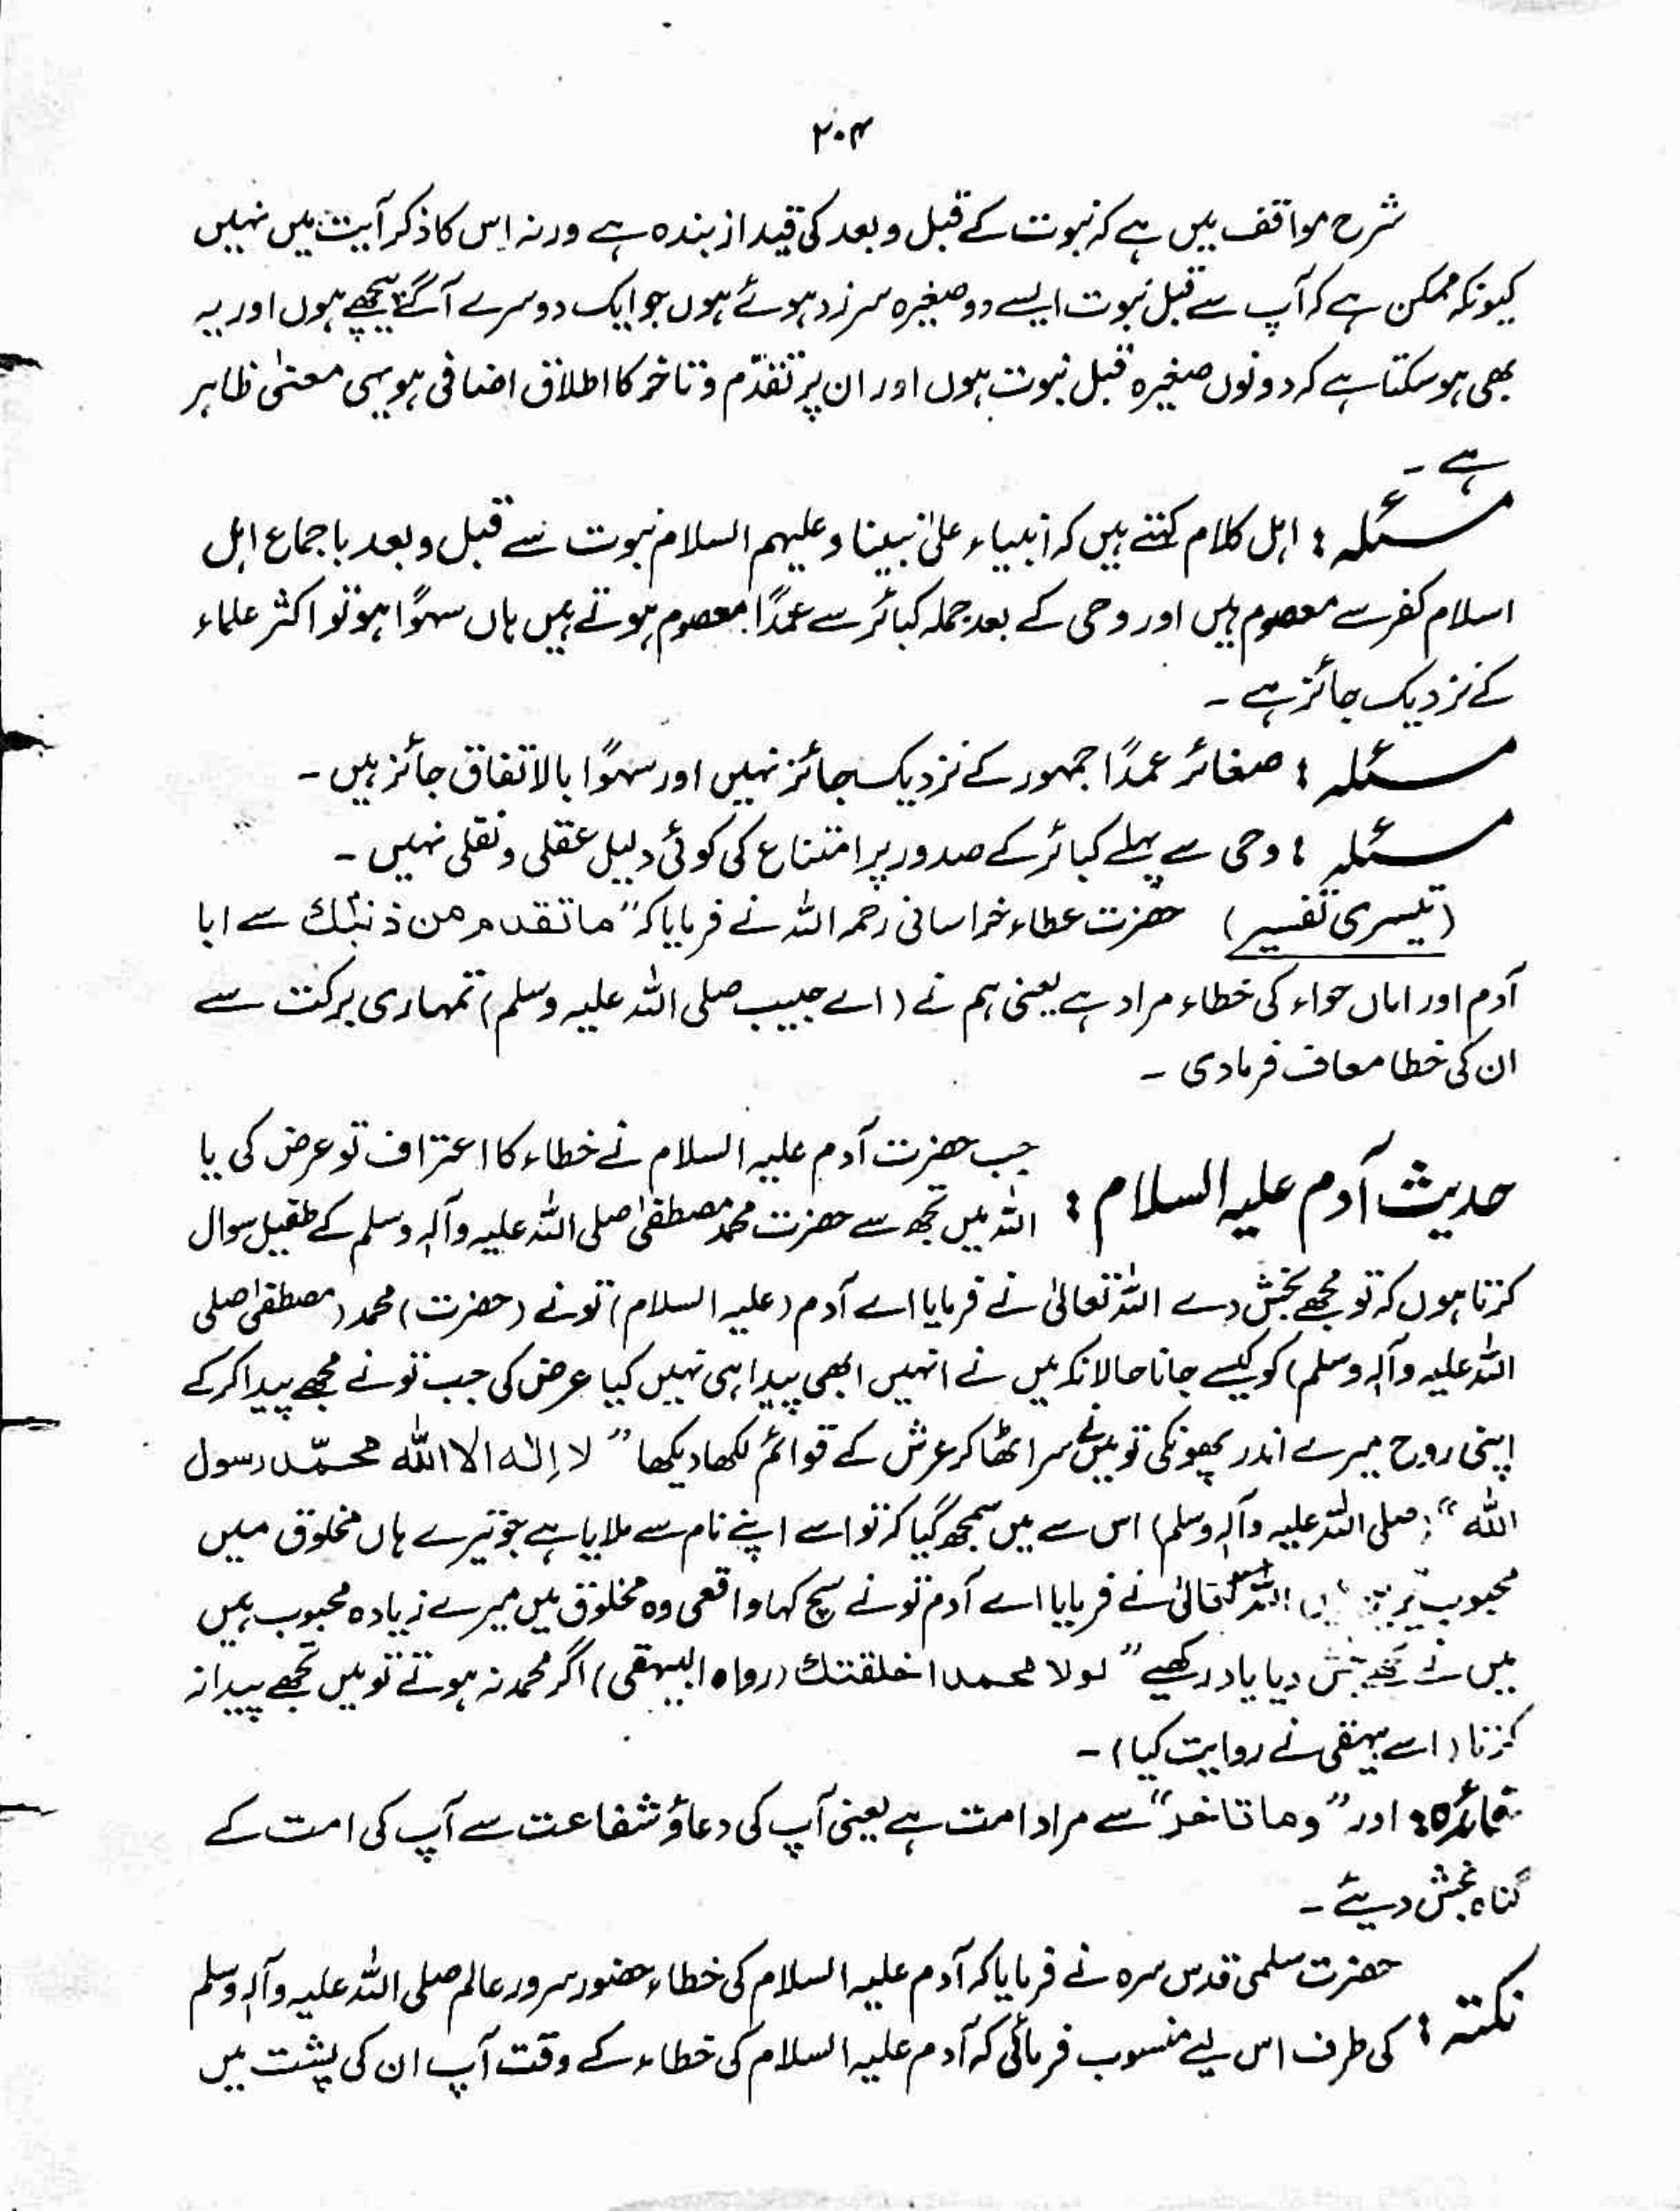 ۲۰۴
شرح مواقف میں ہے کہ نبوت کے قبل و بعد کی قید از بندہ ہے ورنہ اِس کا ذکر آیت میں نہیں
کیونکہ ممکن ہے کہ آپ سے قبل نبوت ایسے دو صغیرہ سرزد ہوئے ہوں جو ایک دوسرے آگے پیچھے ہوں اور یہ
بھی ہو سکتا ہے کہ دونوں صغیرہ قبل نبوت ہوں اور ان پر تقدّم و تاخر کا اطلاق اضافی ہو یہی معنیٰ ظاہر
ہے ۔
مسئلہ : اہل کلام کہتے ہیں کہ انبیاء علیٰ نبینا و علیہم السلام نبوت سے قبل و بعد باجماع اہل
اسلام کفر سے معصوم ہیں اور وحی کے بعد جملہ کبائر سے عمداً معصوم ہوتے ہیں ہاں سہواً ہو تو اکثر علماء
کے نزدیک جائز ہے ۔
مسئلہ : صغائر عمداً جمہور کے نزدیک جائز نہیں اور سہواً بالاتفاق جائز ہیں ۔
مسئلہ : وحی سے پہلے کبائر کے صدور پر امتناع کی کوئی دلیل عقلی و نقلی نہیں ۔
(تیسری تفسیر) حضرت عطاء خراسانی رحمہ اللہ نے فرمایا کہ "ما تقدم من ذنبك سے ابا
آدم اور اماں حواء کی خطاء مراد ہے یعنی ہم نے (اے حبیب صلی اللہ علیہ وسلم) تمہاری برکت سے
ان کی خطا معاف فرما دی ۔
حدیث آدم علیہ السلام : جب حضرت آدم علیہ السلام نے خطاء کا اعتراف تو عرض کی یا
اللہ میں تجھ سے حضرت محمد مصطفیٰ صلی اللہ علیہ وآلہٖ وسلم کے طفیل سوال
کرتا ہوں کہ تو مجھے بخش دے اللہ تعالیٰ نے فرمایا اے آدم (علیہ السلام) تو نے (حضرت) محمد (مصطفیٰ صلی
اللہ علیہ وآلہٖ وسلم) کو کیسے جانا حالانکہ میں نے انہیں ابھی پیدا ہی نہیں کیا عرض کی جب تو نے مجھے پیدا کر کے
اپنی روح میرے اندر پھونکی تو میں نے سر اٹھا کر عرش کے قوائم لکھا دیکھا " لا اِلٰه الا الله محمّد رسول
الله" (صلی اللہ علیہ وآلہٖ وسلم) اس سے میں سمجھ گیا کہ تو اسے اپنے نام سے ملایا ہے جو تیرے ہاں مخلوق میں
محبوب تر اللہ تعالیٰ نے فرمایا اے آدم تو نے سچ کہا واقعی وہ مخلوق میں میرے زیادہ محبوب ہیں
میں نے تجھے بخش دیا یاد رکھیے" لولا محمد اخلقتك (رواہ البیہقی) اگر محمد نہ ہوتے تو میں تجھے پیدا نہ
کرتا (اسے بیہقی نے روایت کیا) ۔
فائدہ : اور "وما تاخر" سے مراد امت ہے یعنی آپ کی دعاؤ شفاعت سے آپ کی امت کے
گناہ بخش دیئے ۔
نکتہ : حضرت سلمی قدس سرہ نے فرمایا کہ آدم علیہ السلام کی خطاء حضور سرور عالم صلی اللہ علیہ وآلہٖ وسلم
کی طرف اس لیے منسوب فرمائی کہ آدم علیہ السلام کی خطاء کے وقت آپ ان کی پشت میں